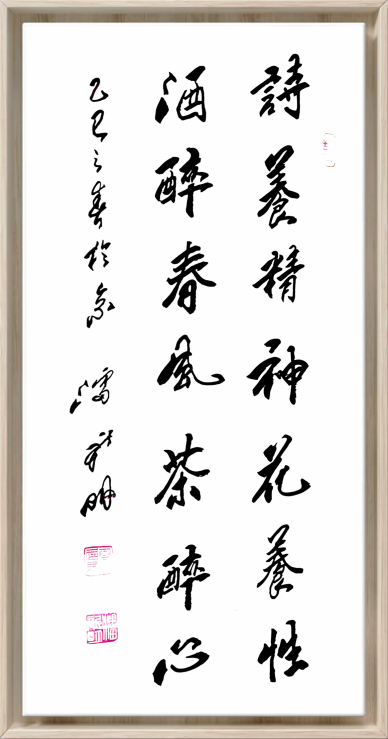 詩養精神花養性
酒醉春風茶醉心
乙巳之春於京
明